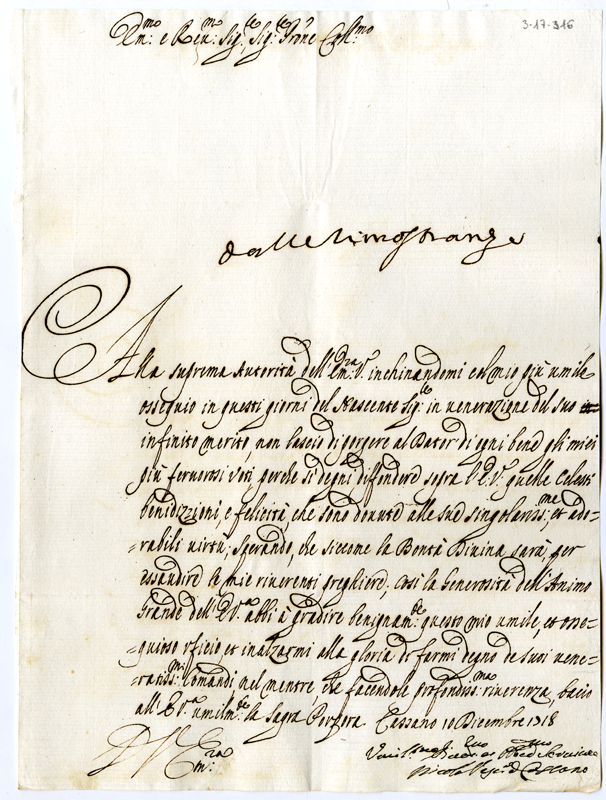 3-17-316
Em:mo e Reu:mo Sig:re Sig:re Prone Coll:mo
dalle rimostranze
Alla suprema Autorità dell'Em:za V. inchinandomi col mio più umile
ossequio in questi giorni del Nascente Sig:re in uenerazione del suo
infinito merito, non lascio di porgere al Dator di ogni bene gli miei
più feruorosi voti, perche si degni diffondere sopra l'E.V. quelle Celesti
benidizzioni, e felicità, che sono douute alle sue singolariss:me et ado=
=rabili uirtù; Sperando, che siccome la Bontà Diuina sarà, per
essaudire le mie riuerenti preghiere, così la Generosità dell'Animo
Grande dell'E.V.a abbi à gradire benignam:te questo mio umile, et osse=
=quioso officio et inalzarmi alla gloria di farmi degno de suoi uene=
=ratiss:mi Comandi; nel mentre, che facendole profondiss:ma riuerenza, bacio
all'E.V.a umilm:te la Sagra Porpora. Cassano 10 Dicembre 1718
D V Em:za
Nicola Vesc:o di Cassano